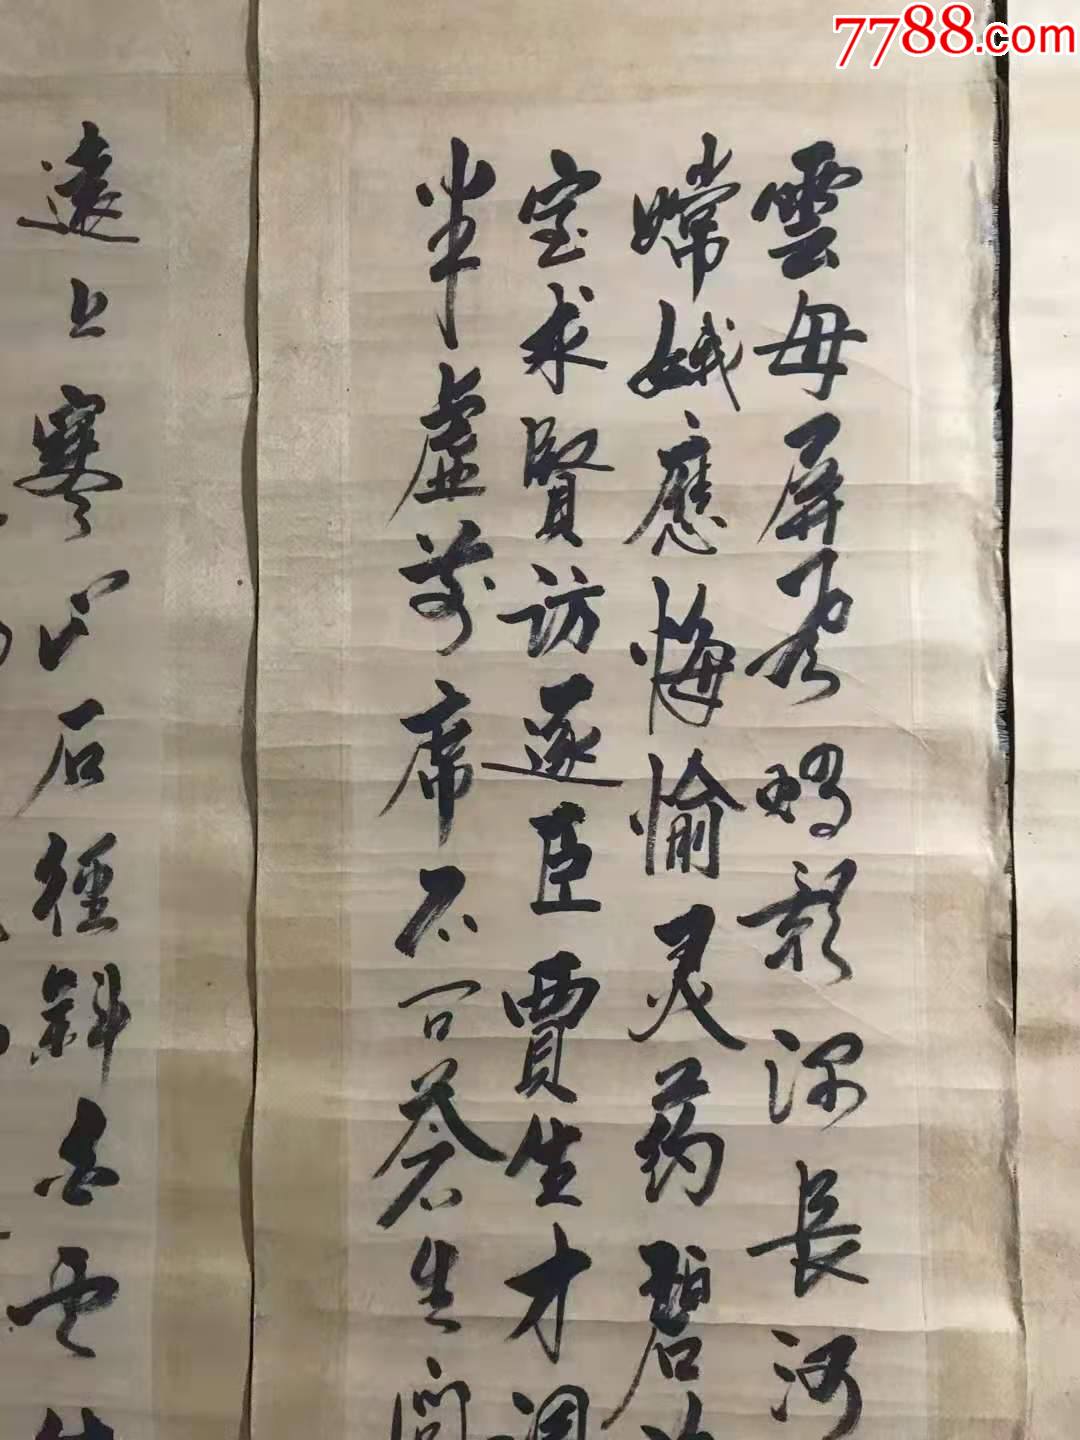 7788.com
雲母屏風燭影深長河
嫦娥應悔愉灵药碧
室求賢訪逐臣賈生才調
半虛前席不问蒼生問
遠上寒山石徑斜白云